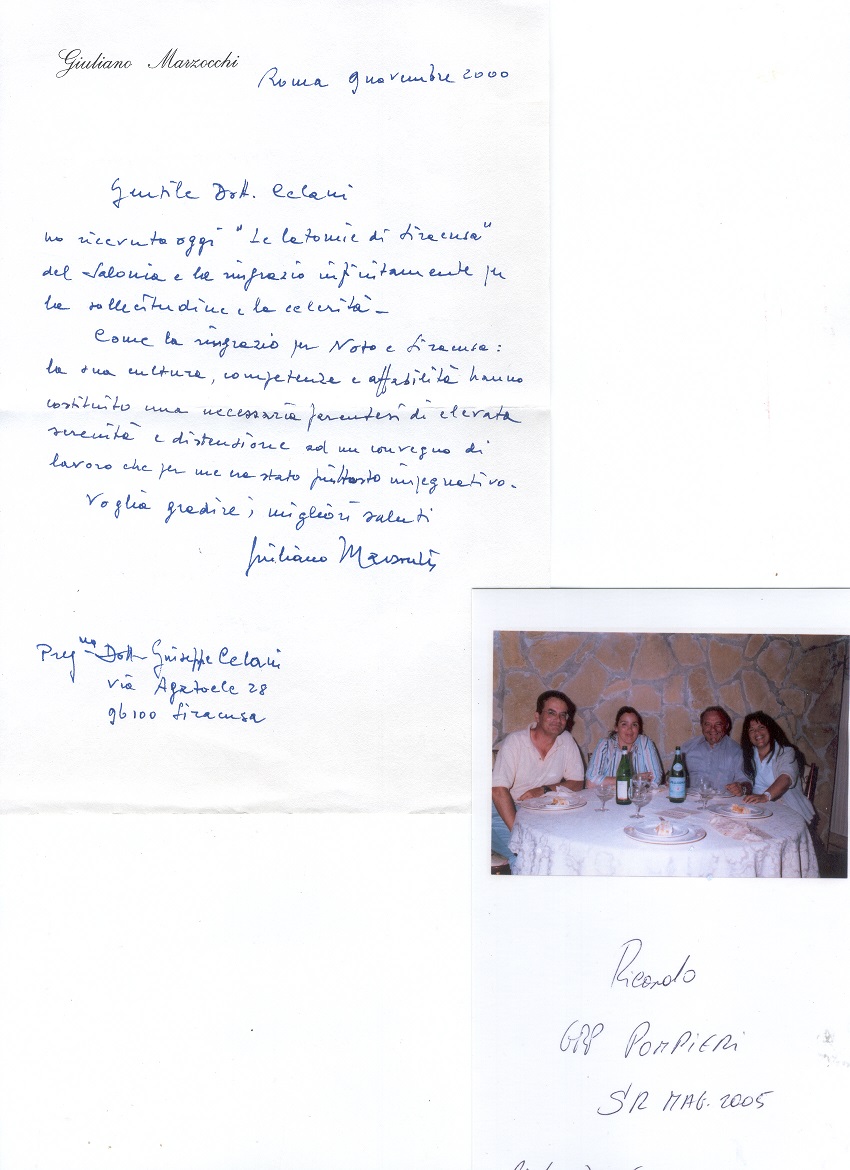 Giuliano Marzocchi
Roma 9 novembre 2000
Gentile Dott. Celani
ho ricevuto oggi "Le latomie di Siracusa"
del Salonia e la ringrazio infinitamente per
la sollecitudine e la celerità –
Come la ringrazio per Noto e Siracusa:
la sua cultura, competenza e affabilità hanno
costituito una necessaria parentesi di elevata
serenità e distensione ad un convegno di
lavoro che per me era stato piuttosto impegnativo.
Voglia gradire i migliori saluti
Giuliano Marzocchi
Preg.mo Dott. Giuseppe Celani
via Agatocle 28
96100 Siracusa
Ricordo
GPP POMPIERI
SR MAG. 2005